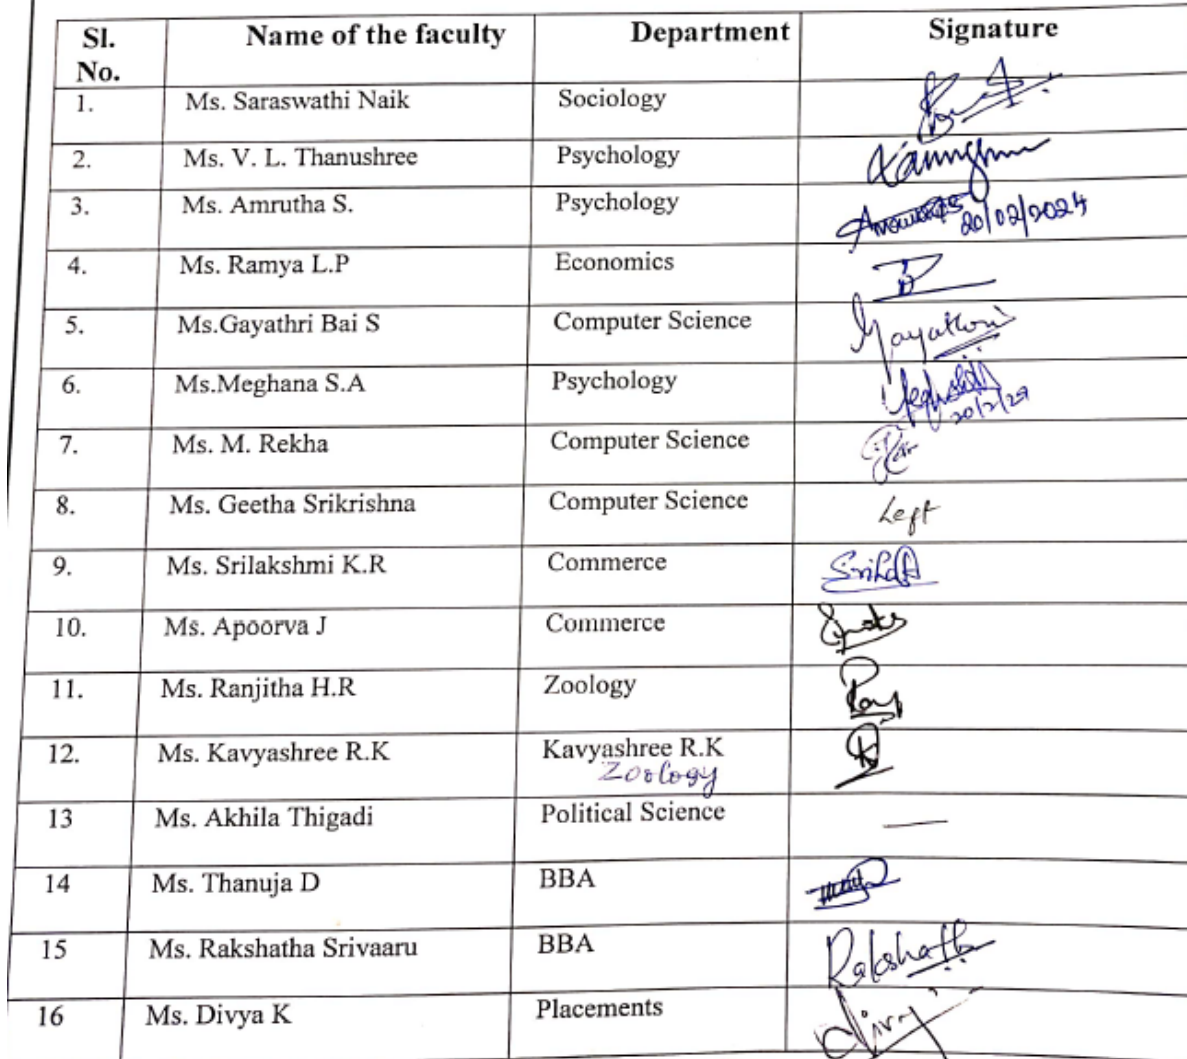 Sl. No. Name of the faculty Department Signature
1. Ms. Saraswathi Naik Sociology
2. Ms. V. L. Thanushree Psychology
3. Ms. Amrutha S. Psychology 20/02/2024
4. Ms. Ramya L.P Economics
5. Ms.Gayathri Bai S Computer Science Gayathri
6. Ms.Meghana S.A Psychology
7. Ms. M. Rekha Computer Science
8. Ms. Geetha Srikrishna Computer Science Left
9. Ms. Srilakshmi K.R Commerce
10. Ms. Apoorva J Commerce
11. Ms. Ranjitha H.R Zoology
12. Ms. Kavyashree R.K Kavyashree R.K
Zoology
13 Ms. Akhila Thigadi Political Science —
14 Ms. Thanuja D BBA
15 Ms. Rakshatha Srivaaru BBA Rakshatha
16 Ms. Divya K Placements